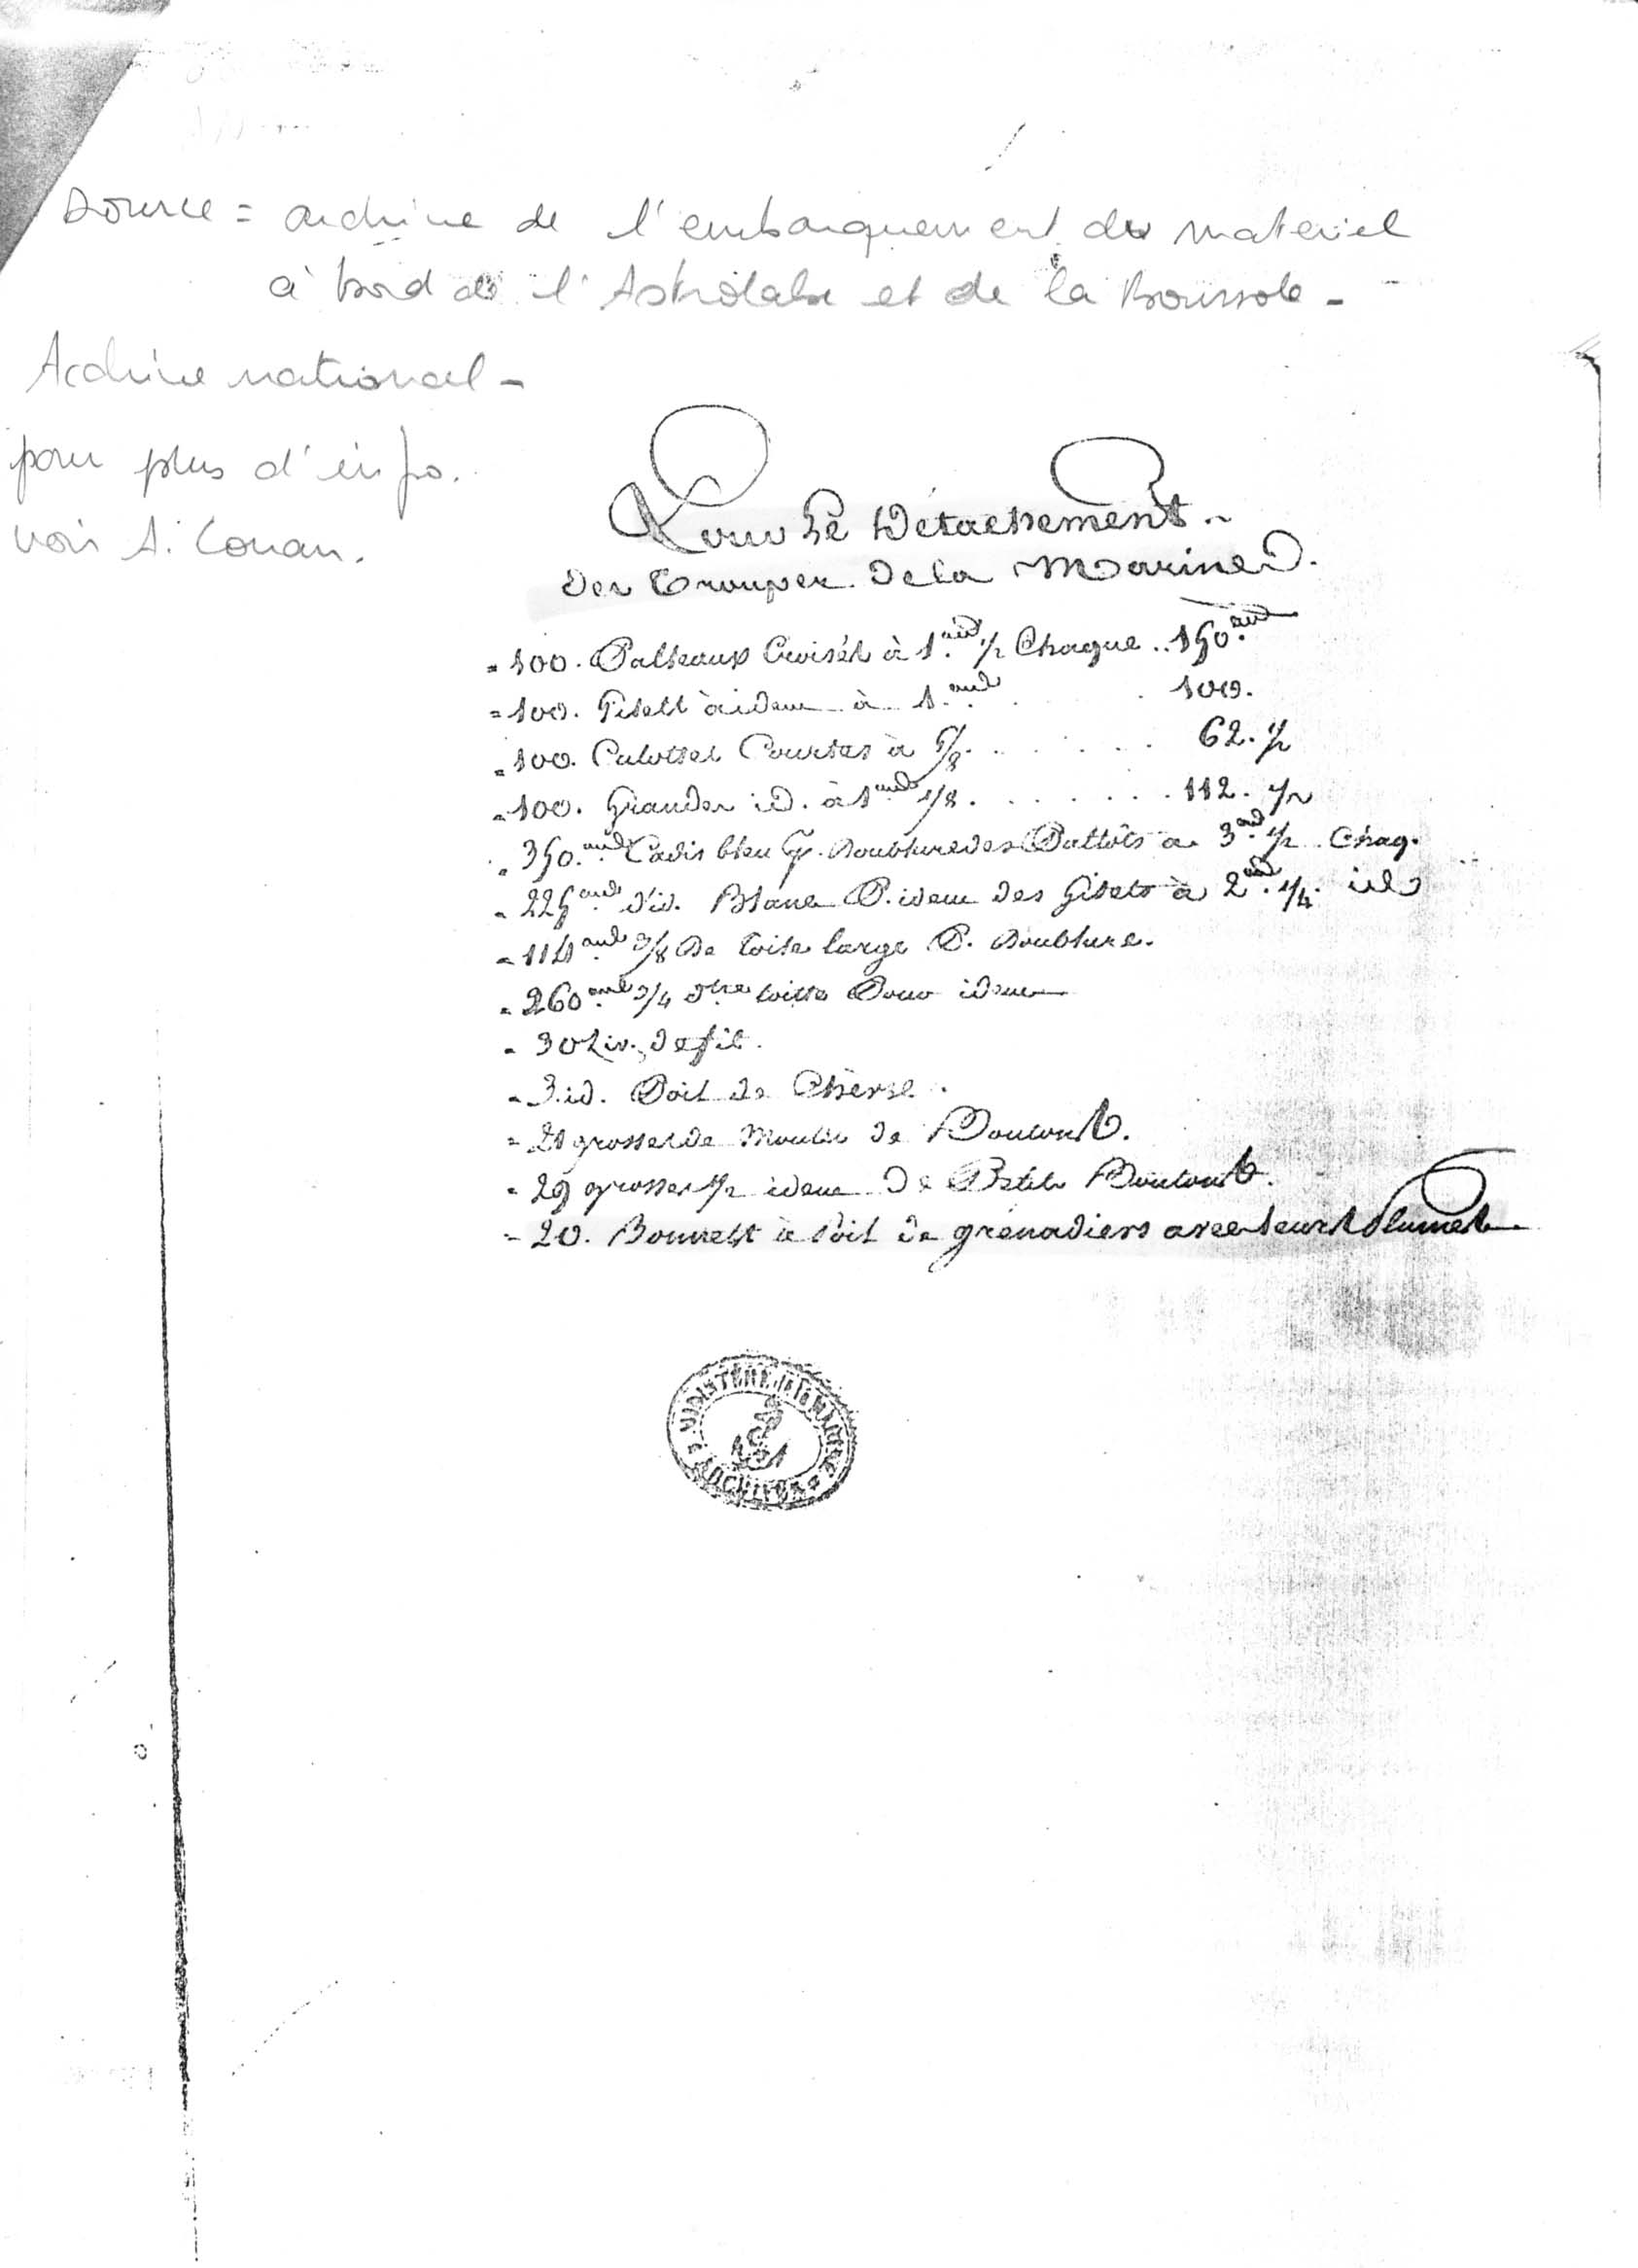 Source = archive de l'embarquement du materiel
à bord de l'Astrolabe et de la Boussole -
Archive national -
pour plus d'info.
voir A. Conan.
Pour Le Détachement
Des Troupes De la Marine.
= 100. Palteaux Croisés à 1.aud 1/2 Chaque .. 150.aud
= 100. Gilets à idem à 1.aud . . 100.
= 100. Culottes Courtes à 5/8 . . . . . . 62. 1/2
= 100. Grandes id. à 1aud 1/8 . . . . . . 112. 1/2
= 350.aud Cadis bleu Pr. Doublure des Paltots à 3aud 1/2 Chaq.
= 225aud d'id. Blanc P. idem des Gilets à 2aud 1/4 id
= 114aud 3/8 De toile large P. Doublure.
= 260aud 3/4 dtre toille Pour idem
= 30 Liv. De fil.
= 3. id. Poil de Chèvre.
= 21 grosses de Moules de Boutons.
= 29 grosses 1/2 idem De Petits Boutons.
= 20. Bonnets à Poil De grenadiers avec leurs Plumets.
MINISTERE DE LA MARINE
ARCHIVES